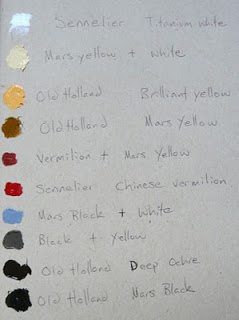 Sennelier Titanium white
Mars yellow + white
Old Holland Brilliant yellow
Old Holland Mars Yellow
Vermilion + Mars Yellow
Sennelier Chinese vermilion
Mars Black + White
Black + yellow
Old Holland Deep Ochre
Old Holland Mars Black